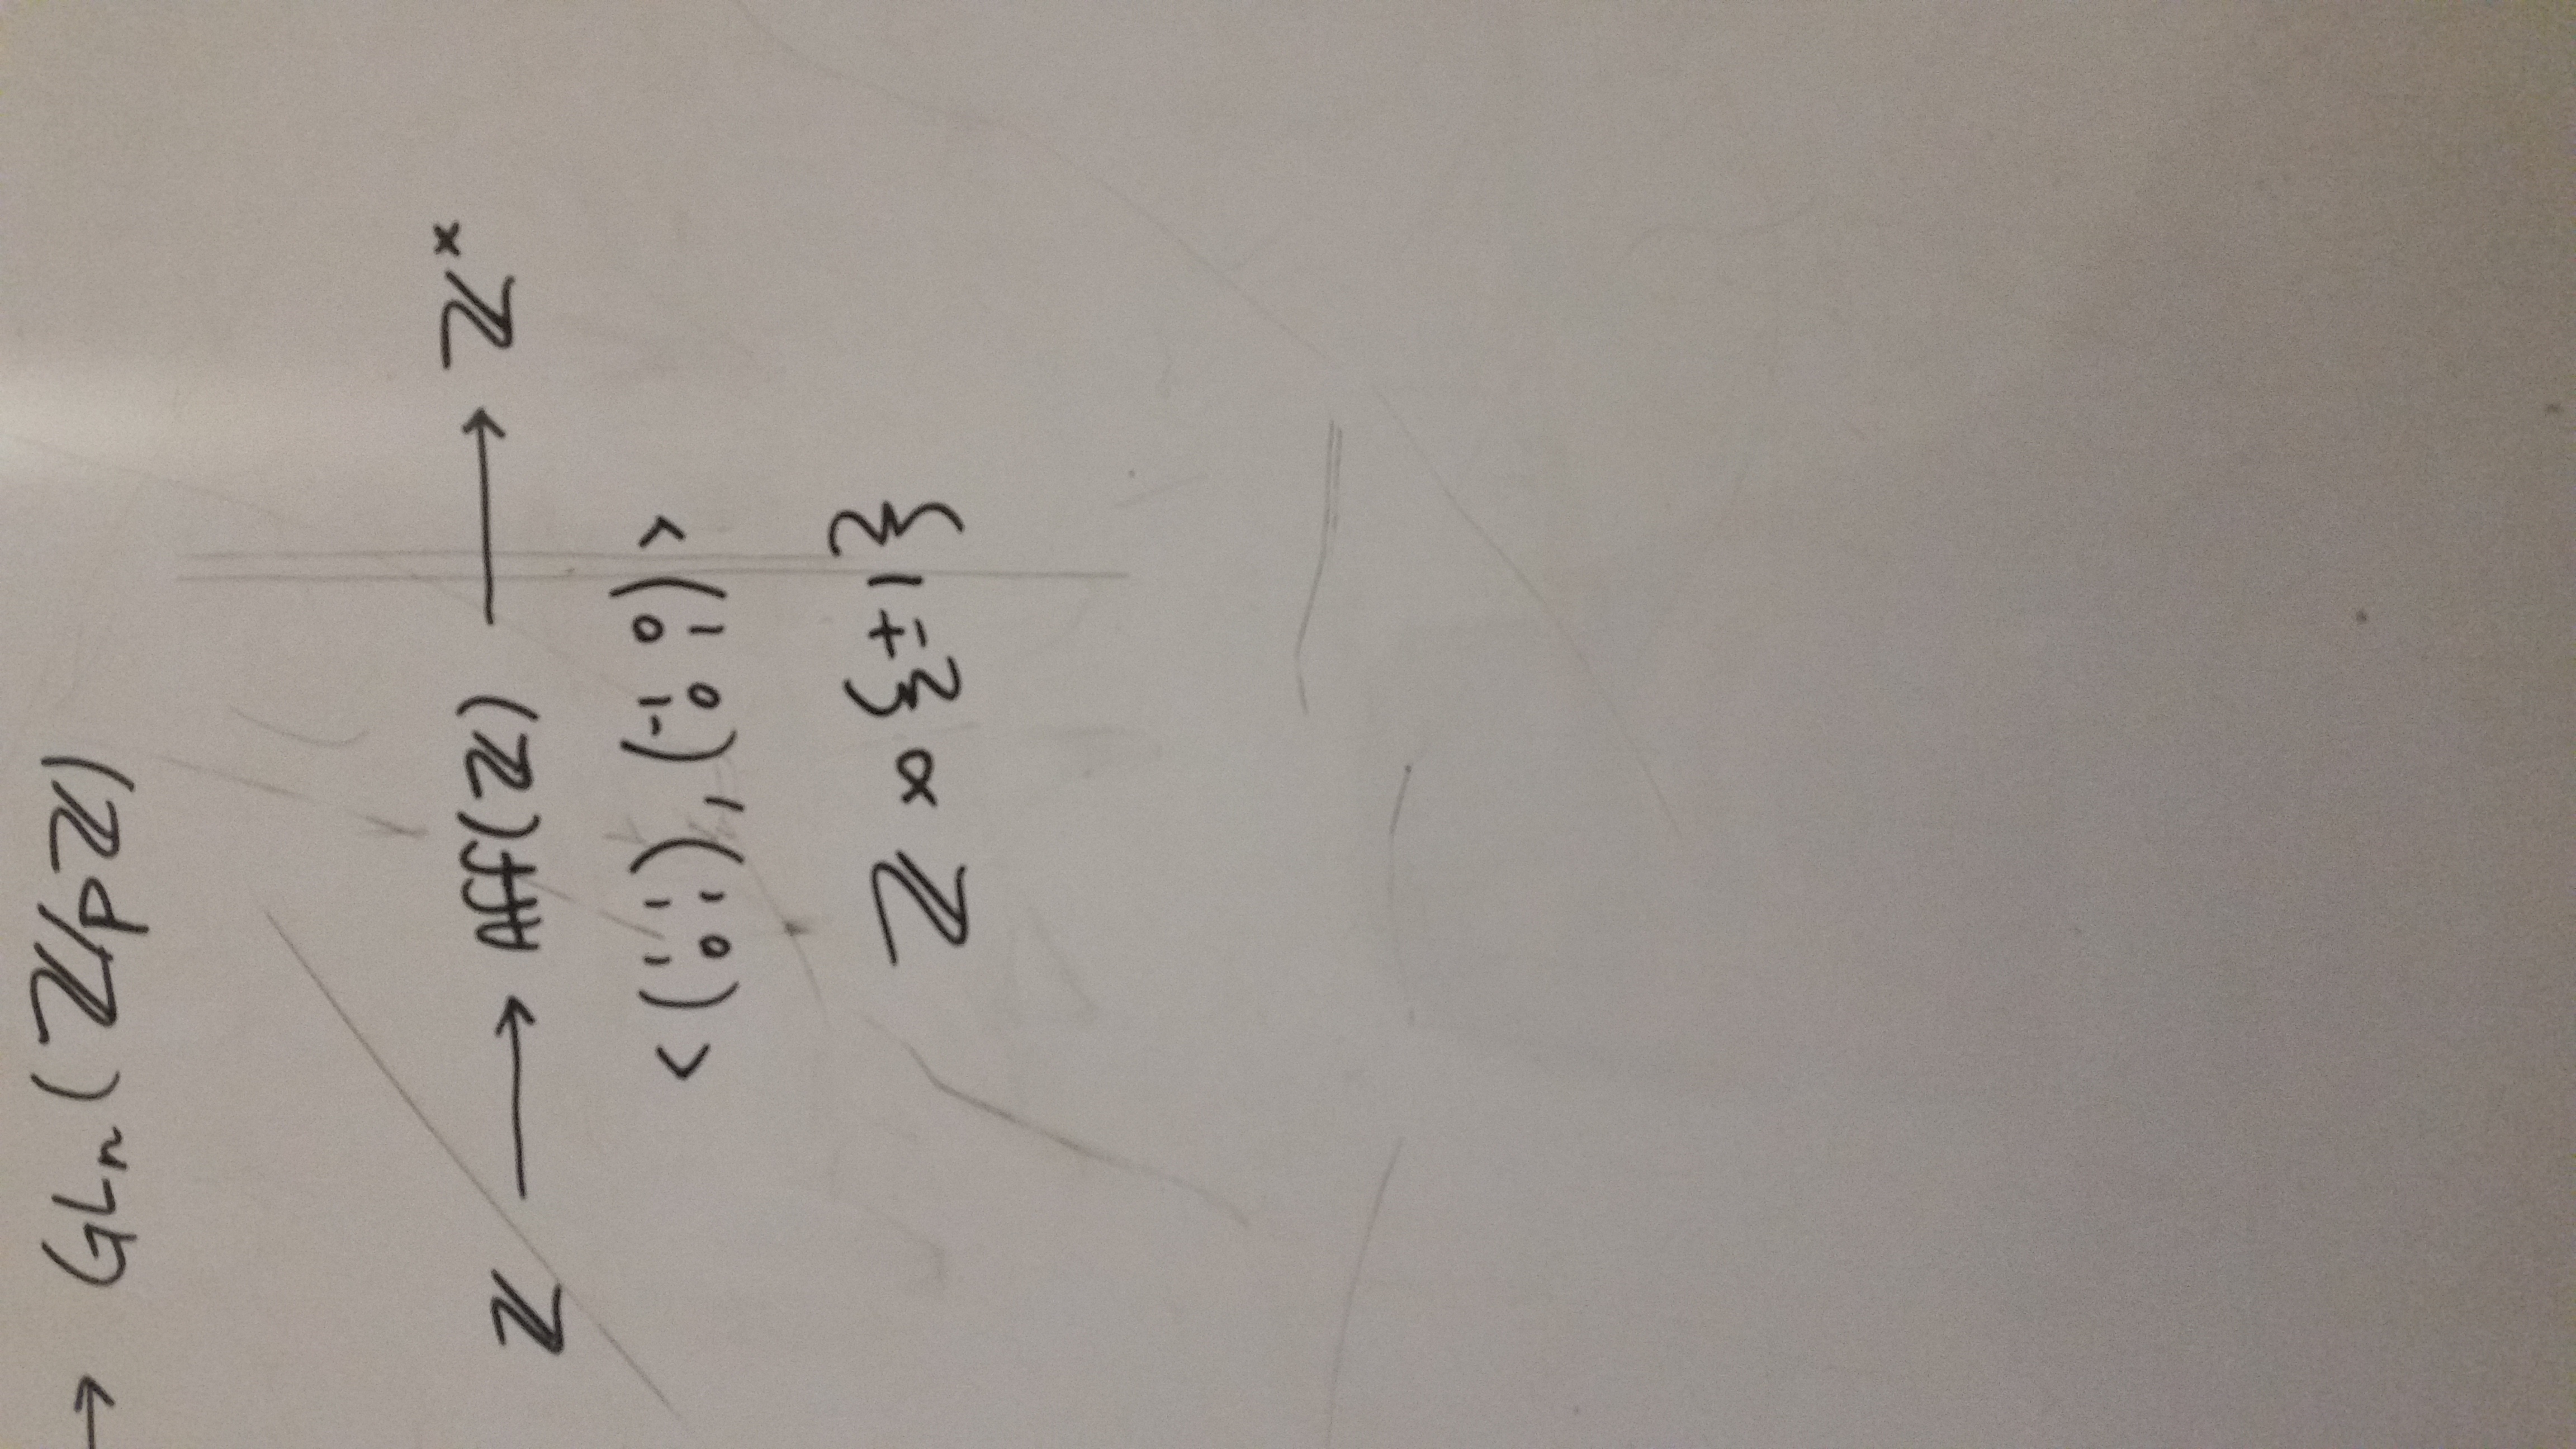 → GLₙ(ℤ/pℤ)
ℤ → Aff(ℤ) → ℤˣ
<(1 1; 0 1), (-1 0; 0 1)>
ℤ ⋊ {±1}